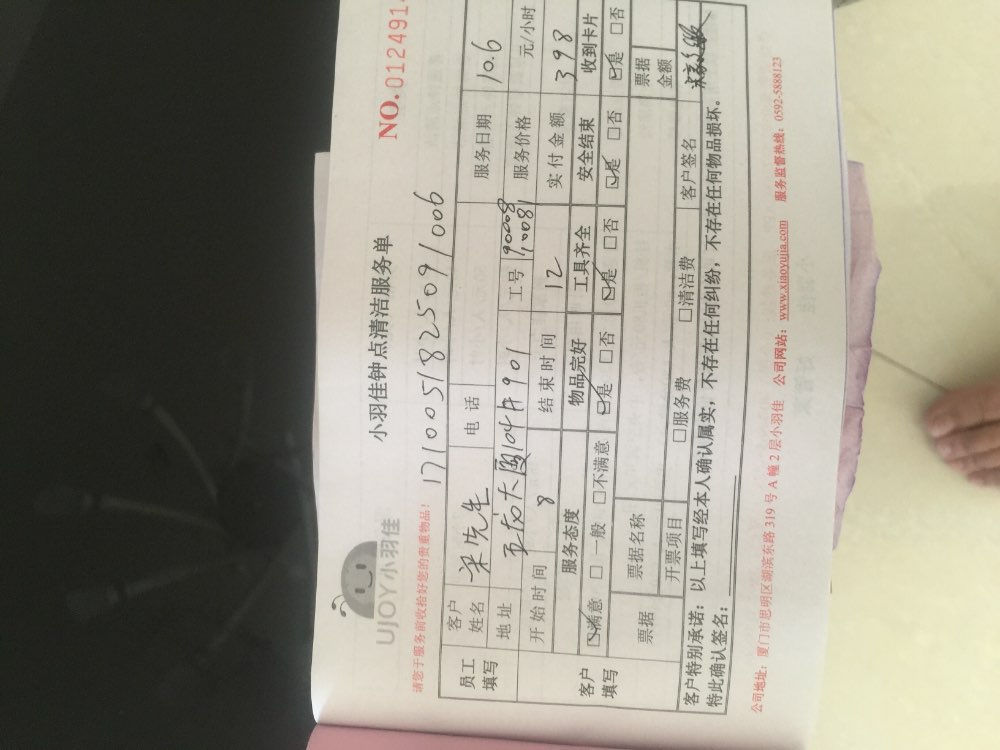 UJOY小羽佳
小羽佳钟点清洁服务单
NO.0124914
请您于服务前收拾好您的贵重物品!
171005182509 1006
员工填写
客户姓名 梁先生 电话 服务日期 10.6
地址 104 901 工号 90008 10081 服务价格 元/小时
开始时间 8 结束时间 12 实付金额 398
客户填写
服务态度 物品完好 工具齐全 安全结束 收到卡片
☑满意 □一般 □不满意 ☑是 □否 ☑是 □否 ☑是 □否 ☑是 □否
票据 票据名称 票据金额
开票项目 □服务费 □清洁费 客户签名
客户特别承诺:以上填写经本人确认属实,不存在任何纠纷,不存在任何物品损坏。
特此确认签名:
公司地址:厦门市思明区湖滨东路319号A幢2层小羽佳 公司网站:www.xiaoyujia.com 服务监督热线:0592-5888123